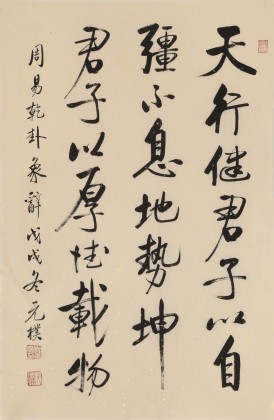 天行健君子以自
彊不息地勢坤
君子以厚德載物
周易乾卦象辭戊戌冬元樸